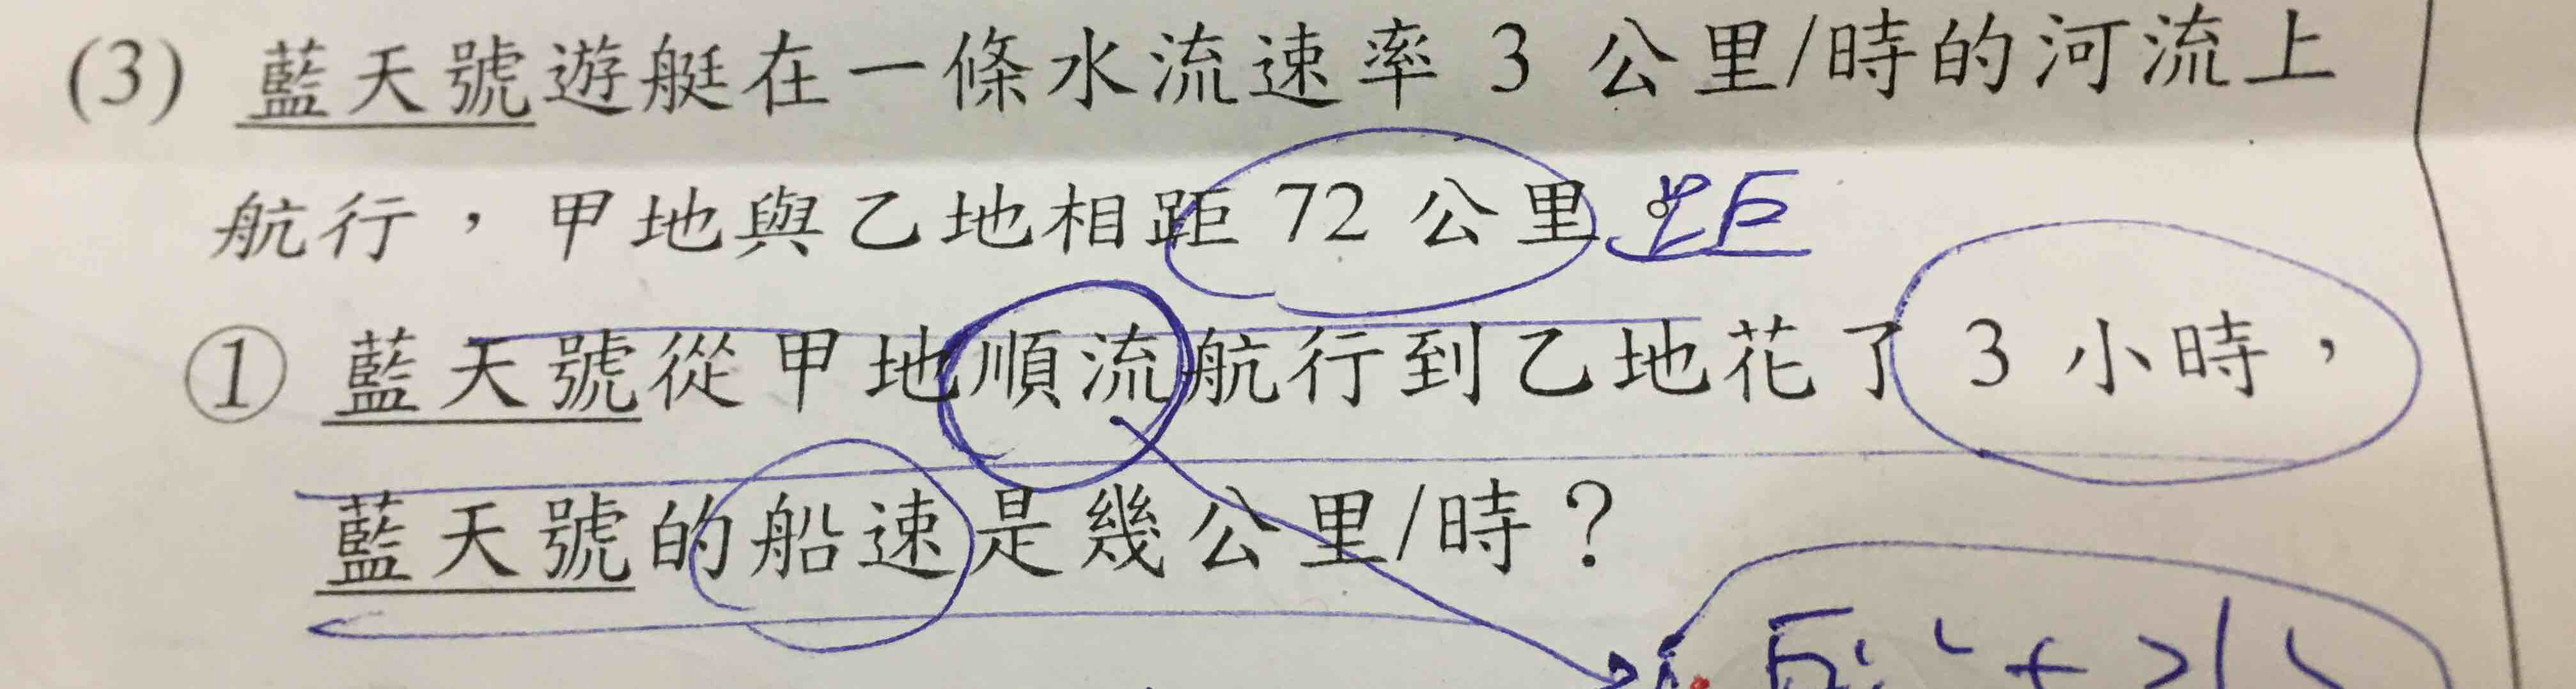 (3) 藍天號遊艇在一條水流速率 3 公里/時的河流上
航行，甲地與乙地相距 72 公里。
① 藍天號從甲地順流航行到乙地花了 3 小時，
藍天號的船速是幾公里/時？